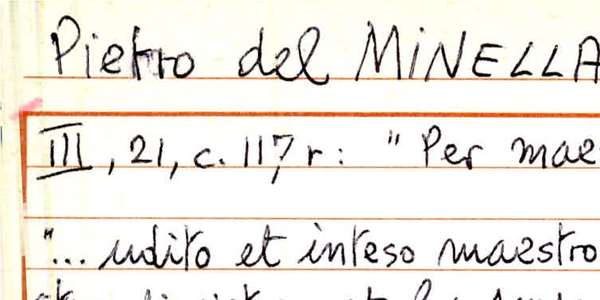 Pietro del MiNELLA
III, 21, c. 117 r: "Per mae
"... udito et inteso maestro